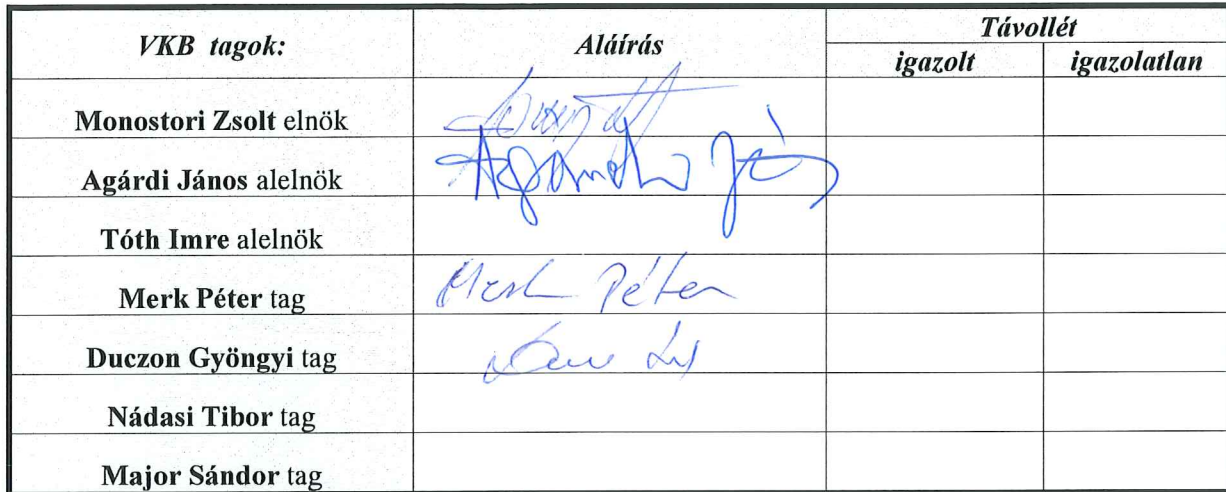 VKB tagok: Aláírás Távollét
igazolt igazolatlan
Monostori Zsolt elnök
Agárdi János alelnök
Tóth Imre alelnök
Merk Péter tag Merk Péter
Duczon Gyöngyi tag
Nádasi Tibor tag
Major Sándor tag